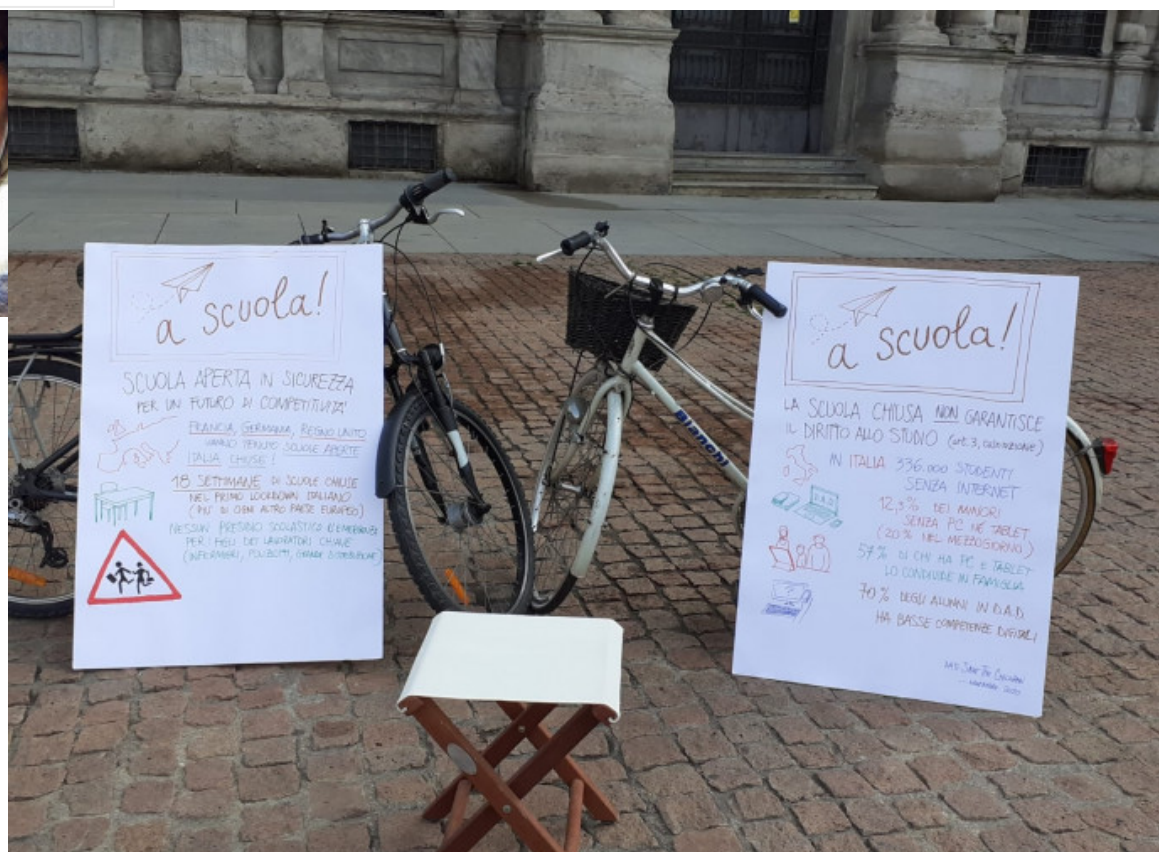 a scuola!
SCUOLA APERTA IN SICUREZZA
PER UN FUTURO DI COMPETITIVITA'
FRANCIA, GERMANIA, REGNO UNITO
HANNO TENUTO SCUOLE APERTE
ITALIA CHIUSE!
18 SETTIMANE DI SCUOLE CHIUSE
NEL PRIMO LOCKDOWN ITALIANO
(PIU' DI OGNI ALTRO PAESE EUROPEO)
NESSUN PRESIDIO SCOLASTICO D'EMERGENZA
PER I FIGLI DEI LAVORATORI CHIAVE
(INFERMIERI, POLIZIOTTI, GRANDE DISTRIBUZIONE)
Bianchi
a scuola!
LA SCUOLA CHIUSA NON GARANTISCE
IL DIRITTO ALLO STUDIO (art. 3,
IN ITALIA 336.000 STUDENTI
SENZA INTERNET
12,3% DEI MINORI
SENZA PC NÉ TABLET
(20% NEL MEZZOGIORNO)
57% DI CHI HA PC E TABLET
LO CONDIVIDE IN FAMIGLIA
70% DEGLI ALUNNI IN D.A.D.
HA BASSE COMPETENZE DIGITALI
2020